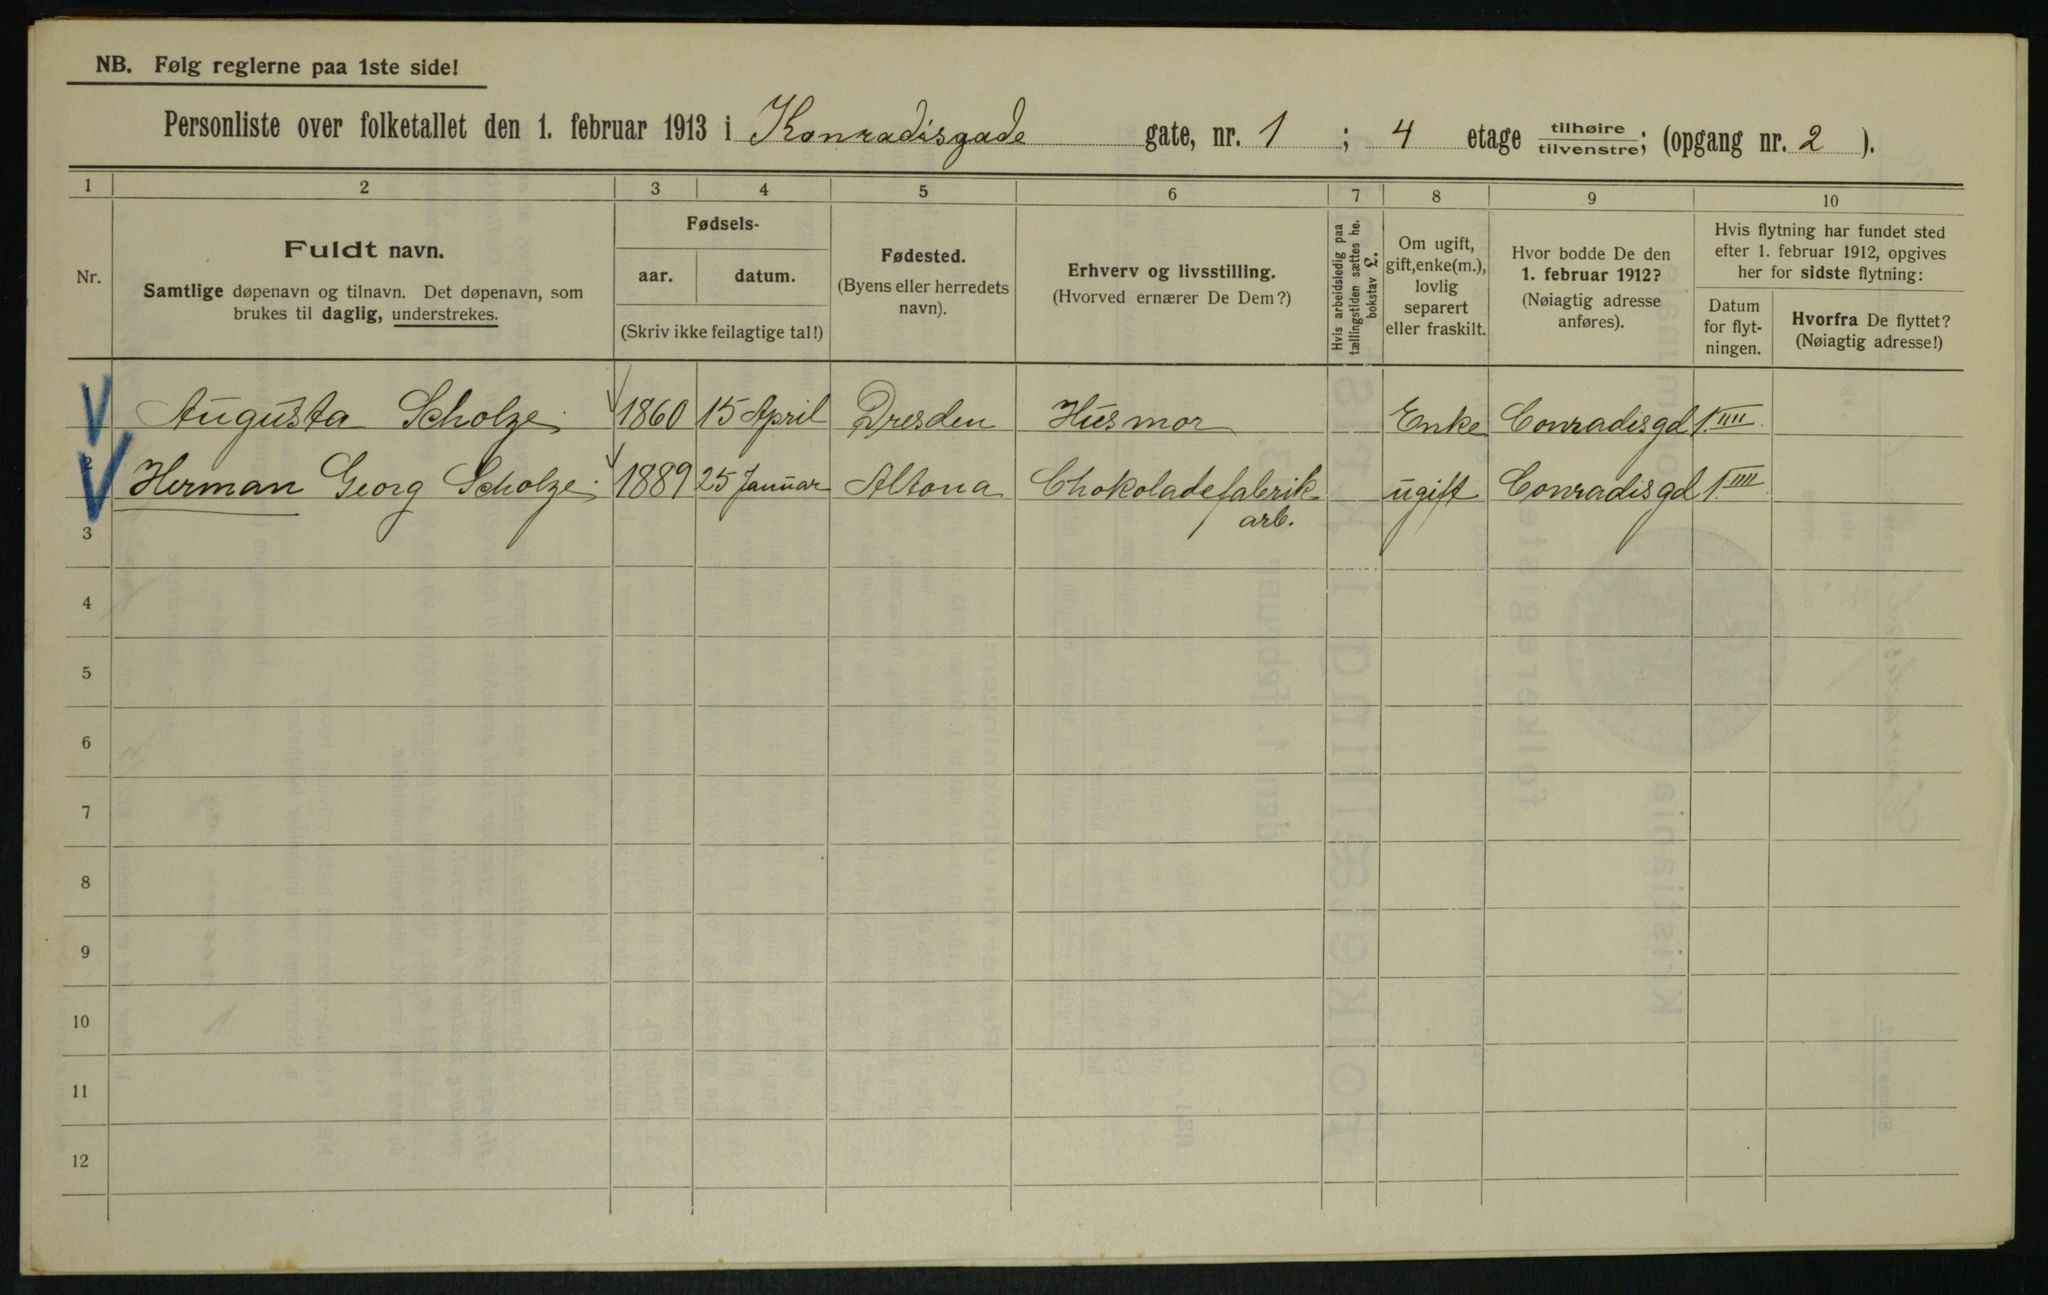 NB. Følg reglerne paa 1ste side!
Personliste over folketallet den 1. februar 1913 i Konradisgade gate, nr. 1 ; 4 etage tilhøire tilvenstre; (opgang nr. 2 ).
1 2 3 4 5 6 7 8 9 10
Nr.
Fuldt navn.
Samtlige døpenavn og tilnavn. Det døpenavn, som
brukes til daglig, understrekes.
Fødsels-
aar. datum.
(Skriv ikke feilagtige tal!)
Fødested.
(Byens eller herredets
navn).
Erhverv og livsstilling.
(Hvorved ernærer De Dem?)
Hvis arbeidsledig paa
tællingstiden sættes he.
bokstav L.
Om ugift,
gift,enke(m.),
lovlig
separert
eller fraskilt.
Hvor bodde De den
1. februar 1912?
(Nøiagtig adresse
anføres).
Hvis flytning har fundet sted
efter 1. februar 1912, opgives
her for sidste flytning:
Datum
for flyt-
ningen.
Hvorfra De flyttet?
(Nøiagtig adresse!)
1 Augusta Scholze. 1860 15 April Dresden Husmor Enke Conradisgd 1.IIII
2 Herman Georg Scholze. 1889 25 Januar Altona Chokoladefabrik ugift Conradisgd 1.IIII
arb.
3
4
5
6
7
8
9
10
11
12